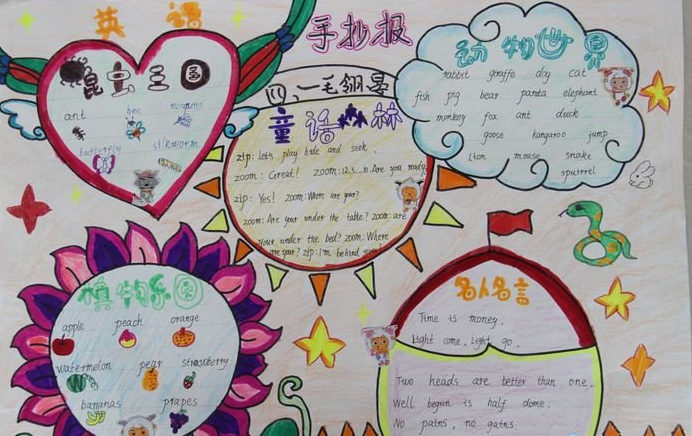 英语
手抄报
昆虫王国
ant bee mosquito
butterfly silkworm
童话森林
zip: Let's play hide and seek.
zoom: Great! zoom: 1.2.3...10. Are you ready
zip: Yes! zoom: Where are you?
zoom: Are your under the table? zoom: are
your under the bed? zoom: Where
are your? zip: I'm behind
动物世界
rabbit giraffe dog cat
fish pig bear panta elephant
monkey fox ant duck
goose kangaroo jump
lion mouse snake
squirrel
植物乐园
apple peach orange
watermelon pear strawberry
bananas grapes
名人名言
Time is money.
Light come, Light go.
Two heads are better than one.
Well begun is half dome.
No pains, no gains